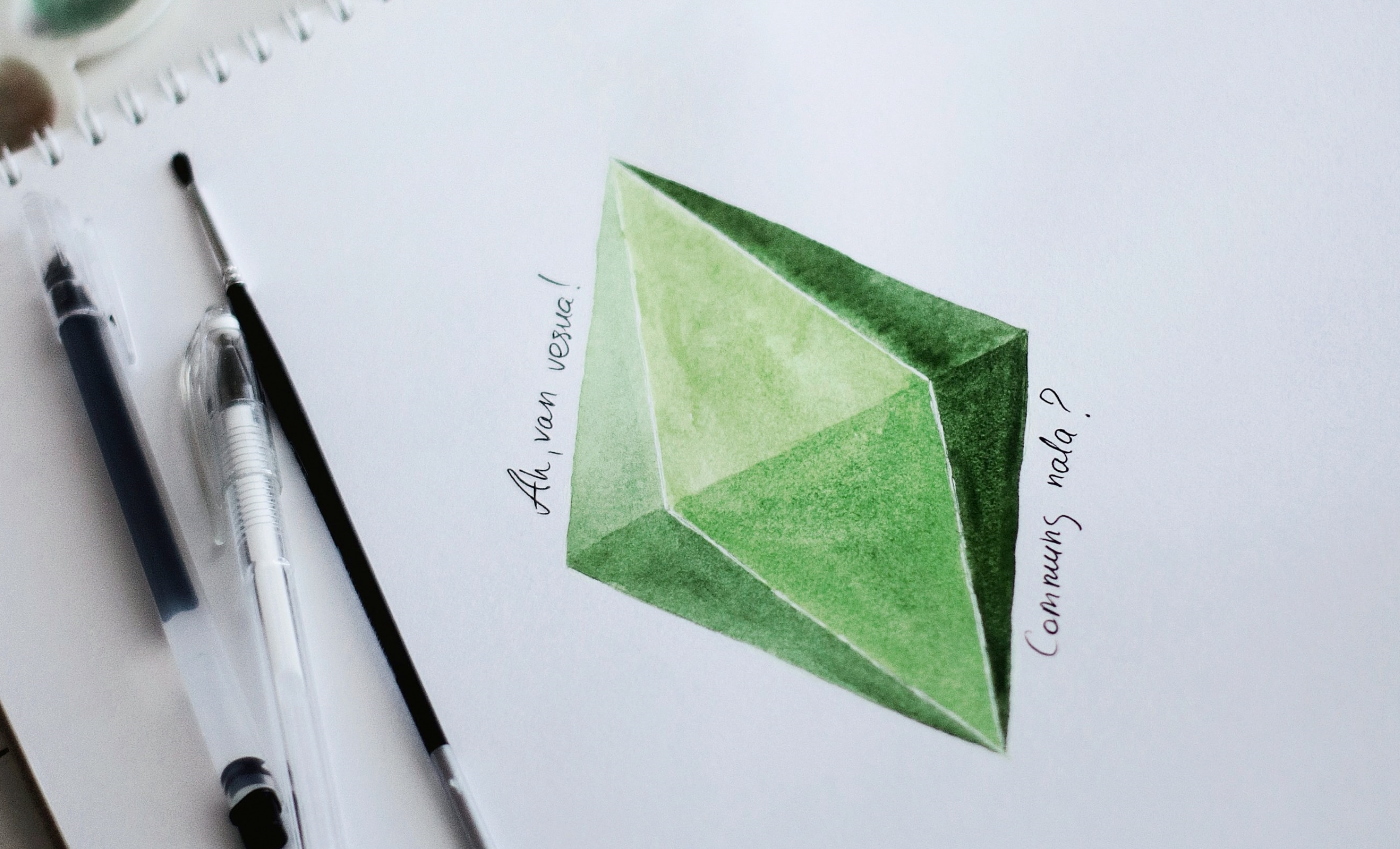 Ah, van vesua!
Commung nala?